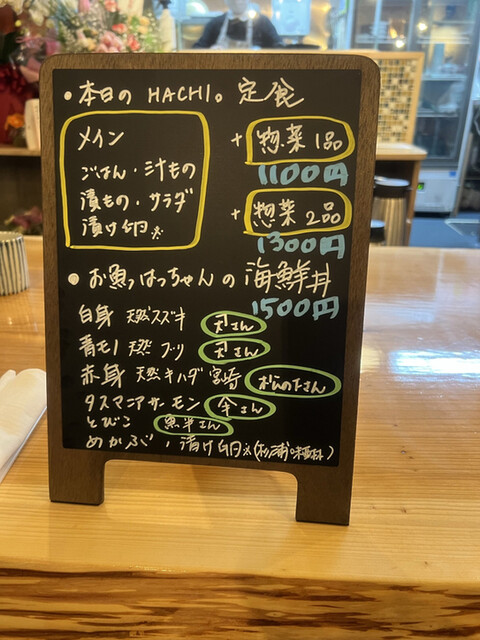 • 本日の HACHI。定食
メイン
ごはん・汁もの
漬もの・サラダ
漬け卵※
+ 惣菜1品
1100円
+ 惣菜2品
1300円
• お魚っはっちゃんの海鮮丼
1500円
白身 天然スズキ
青モノ 天然ブリ
赤身 天然キハダ 宮崎
タスマニアサーモン
とびこ 魚半さん
めかぶ、漬け卵※